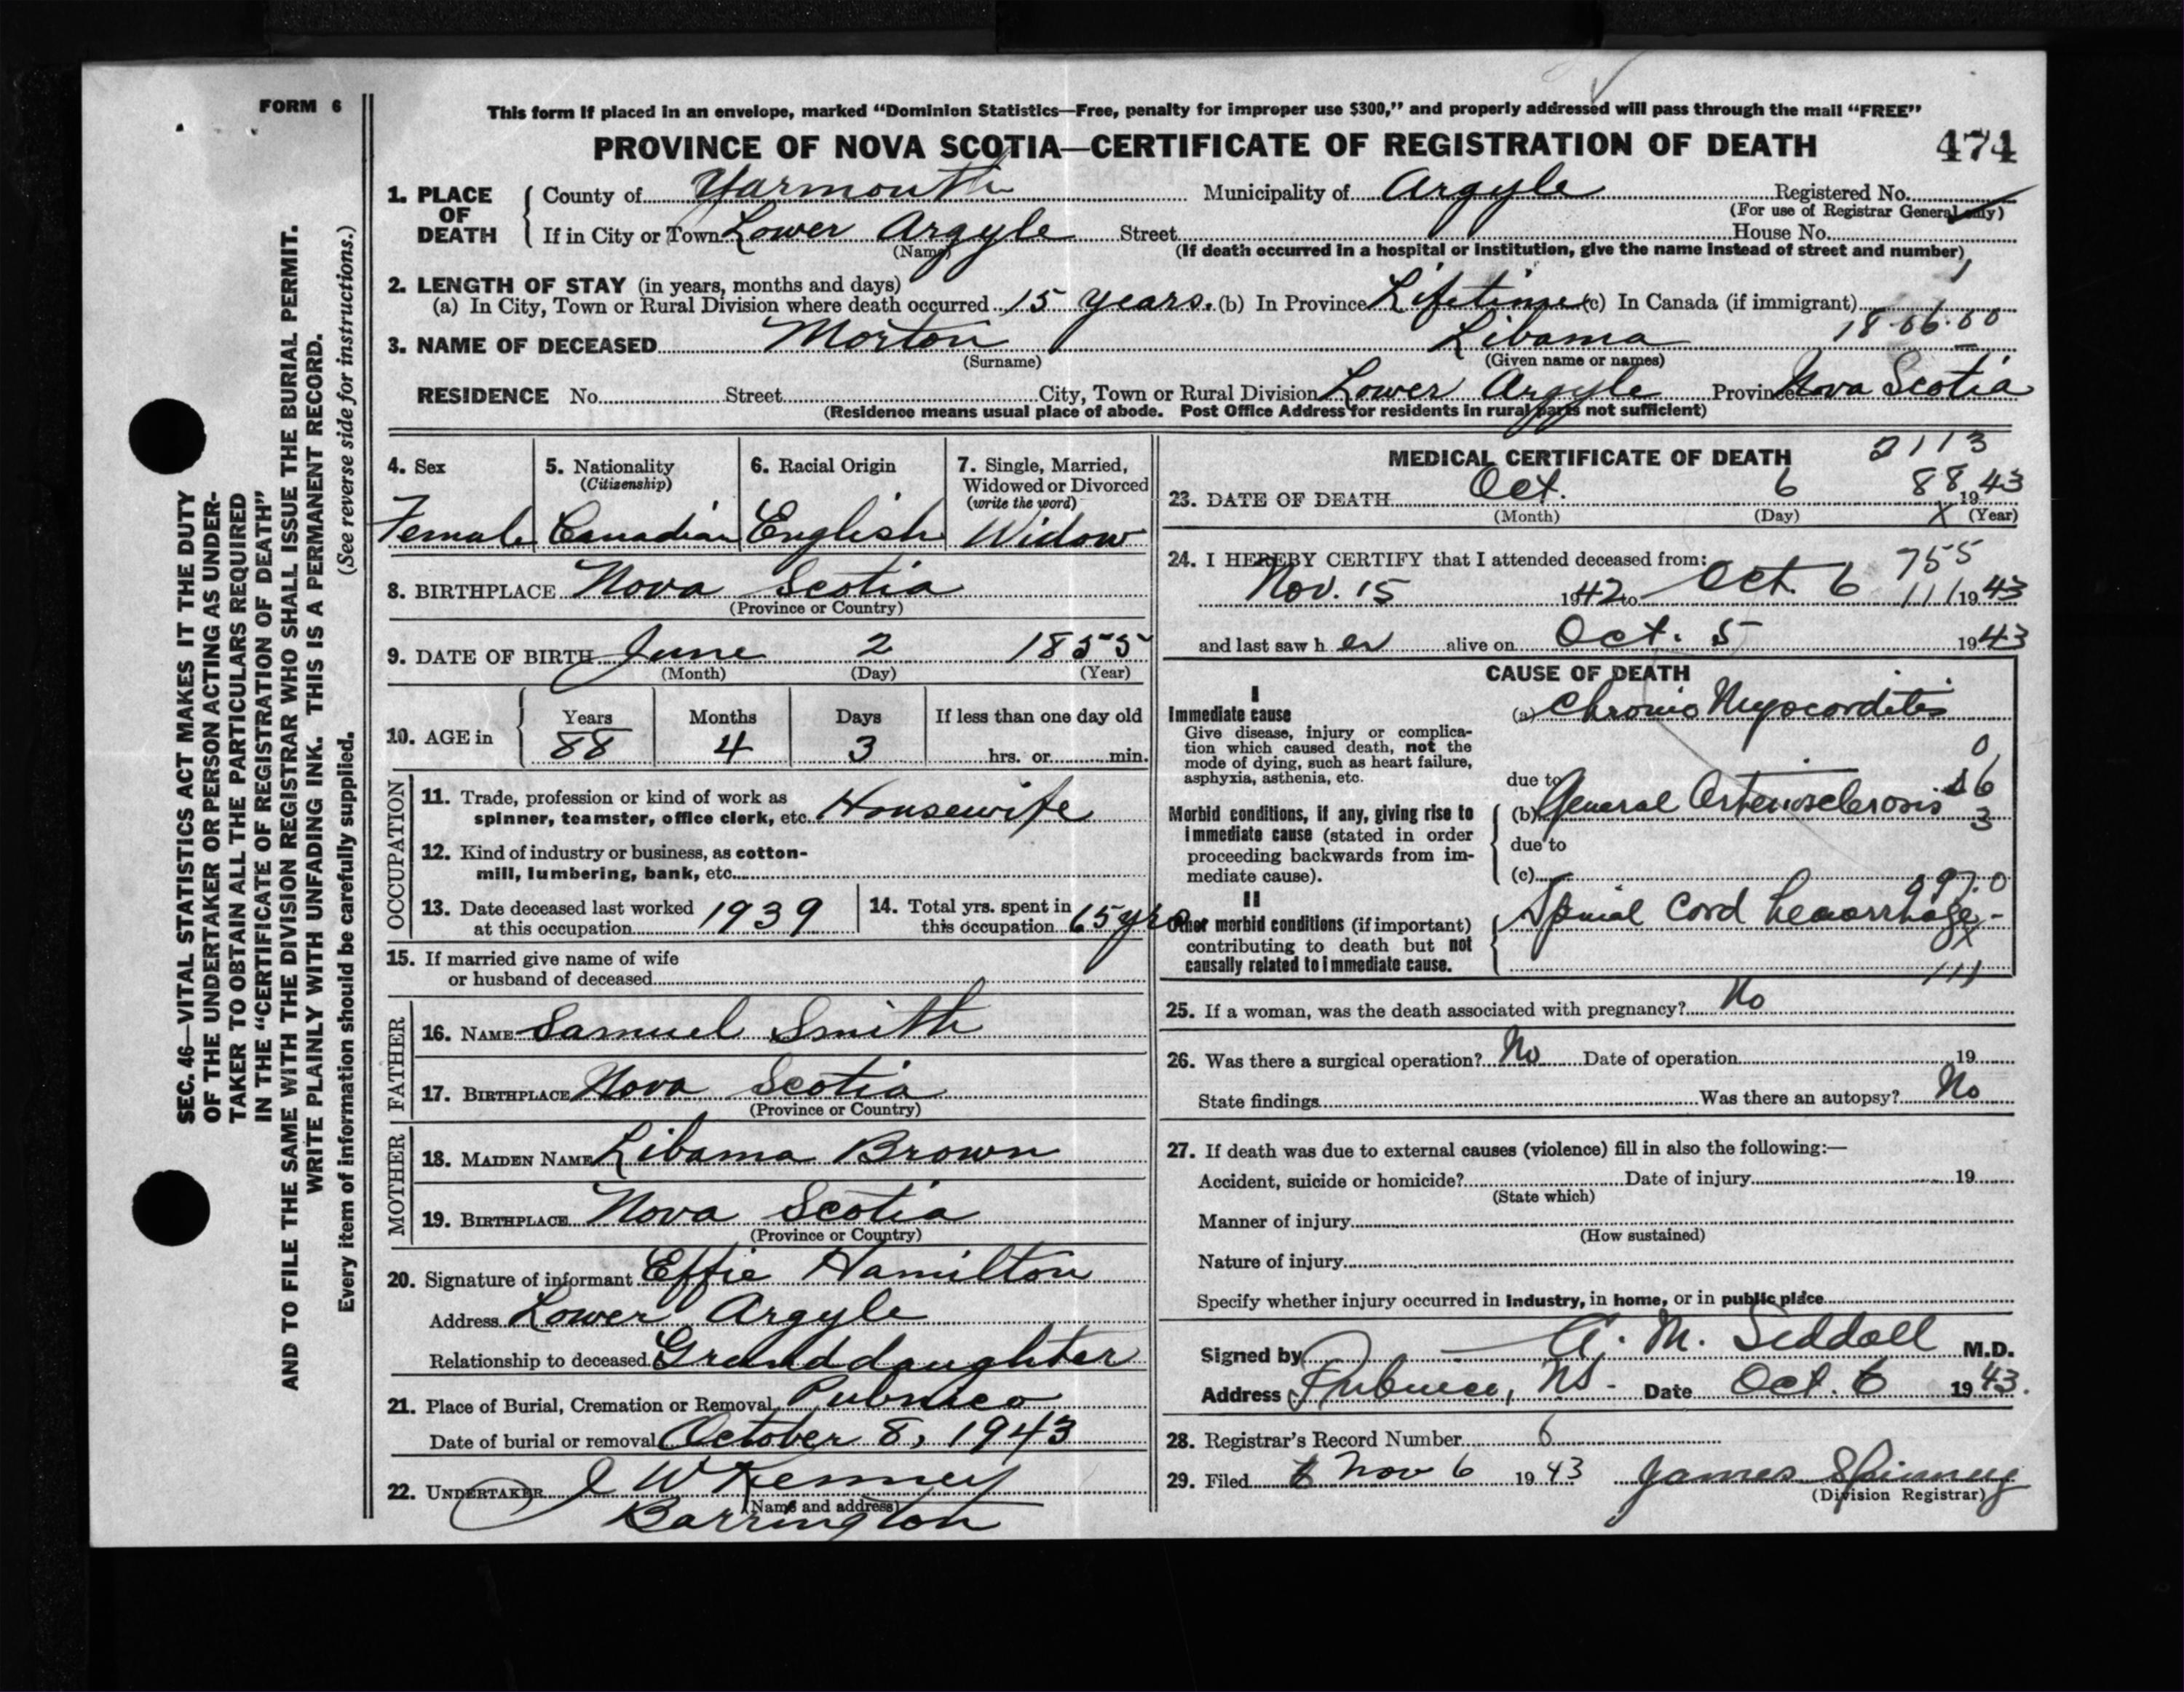 FORM 6
This form if placed in an envelope, marked “Dominion Statistics—Free, penalty for improper use $300,” and properly addressed will pass through the mail “FREE”
PROVINCE OF NOVA SCOTIA—CERTIFICATE OF REGISTRATION OF DEATH 474
1. PLACE OF DEATH { County of Yarmouth Municipality of Argyle Registered No.
(For use of Registrar General only)
If in City or Town Lower Argyle Street House No.
(Name) (If death occurred in a hospital or institution, give the name instead of street and number)
2. LENGTH OF STAY (in years, months and days)
(a) In City, Town or Rural Division where death occurred 15 years. (b) In Province Lifetime (c) In Canada (if immigrant)
18·06·00
3. NAME OF DECEASED Morton Libama
(Surname) (Given name or names)
RESIDENCE No. Street City, Town or Rural Division Lower Argyle Province Nova Scotia
(Residence means usual place of abode. Post Office Address for residents in rural parts not sufficient)
4. Sex 5. Nationality 6. Racial Origin 7. Single, Married,
(Citizenship) Widowed or Divorced
(write the word)
Female Canadian English Widow
8. BIRTHPLACE Nova Scotia
(Province or Country)
9. DATE OF BIRTH June 2 1855
(Month) (Day) (Year)
10. AGE in { Years Months Days If less than one day old
88 4 3 hrs. or min.
OCCUPATION
11. Trade, profession or kind of work as
spinner, teamster, office clerk, etc. Housewife
12. Kind of industry or business, as cotton-
mill, lumbering, bank, etc.
13. Date deceased last worked at this occupation 1939 14. Total yrs. spent in this occupation 65 yrs
15. If married give name of wife
or husband of deceased
FATHER
16. NAME Samuel Smith
17. BIRTHPLACE Nova Scotia
(Province or Country)
MOTHER
18. MAIDEN NAME Libama Brown
19. BIRTHPLACE Nova Scotia
(Province or Country)
20. Signature of informant Effie Hamilton
Address Lower Argyle
Relationship to deceased Granddaughter
21. Place of Burial, Cremation or Removal Pubnico
Date of burial or removal October 8, 1943
22. UNDERTAKER W Kenney
(Name and address)
Barrington
2113
MEDICAL CERTIFICATE OF DEATH
88
23. DATE OF DEATH Oct. 6 1943
(Month) (Day) X (Year)
24. I HEREBY CERTIFY that I attended deceased from: 755
Nov. 15 1942 to Oct. 6 111 1943
and last saw her alive on Oct. 5 1943
CAUSE OF DEATH
I
Immediate cause (a) Chronic Myocorditis
Give disease, injury or complica-
tion which caused death, not the
mode of dying, such as heart failure,
asphyxia, asthenia, etc. due to
Morbid conditions, if any, giving rise to (b) General Arteriosclerosis
immediate cause (stated in order
proceeding backwards from im- due to
mediate cause). (c)
II
Other morbid conditions (if important) Spinal Cord hemorrhage
contributing to death but not
causally related to immediate cause.
111
25. If a woman, was the death associated with pregnancy? No
26. Was there a surgical operation? No Date of operation 19
State findings Was there an autopsy? No
27. If death was due to external causes (violence) fill in also the following:—
Accident, suicide or homicide? Date of injury 19
(State which)
Manner of injury
(How sustained)
Nature of injury
Specify whether injury occurred in industry, in home, or in public place
Signed by A. M. Siddall M.D.
Address Pubnico, NS. Date Oct. 6 1943.
28. Registrar’s Record Number 6
29. Filed Nov 6 1943 James Spinney
(Division Registrar)
SEC. 46—VITAL STATISTICS ACT MAKES IT THE DUTY
OF THE UNDERTAKER OR PERSON ACTING AS UNDER-
TAKER TO OBTAIN ALL THE PARTICULARS REQUIRED
IN THE “CERTIFICATE OF REGISTRATION OF DEATH”
AND TO FILE THE SAME WITH THE DIVISION REGISTRAR WHO SHALL ISSUE THE BURIAL PERMIT.
WRITE PLAINLY WITH UNFADING INK. THIS IS A PERMANENT RECORD.
Every item of information should be carefully supplied. (See reverse side for instructions.)